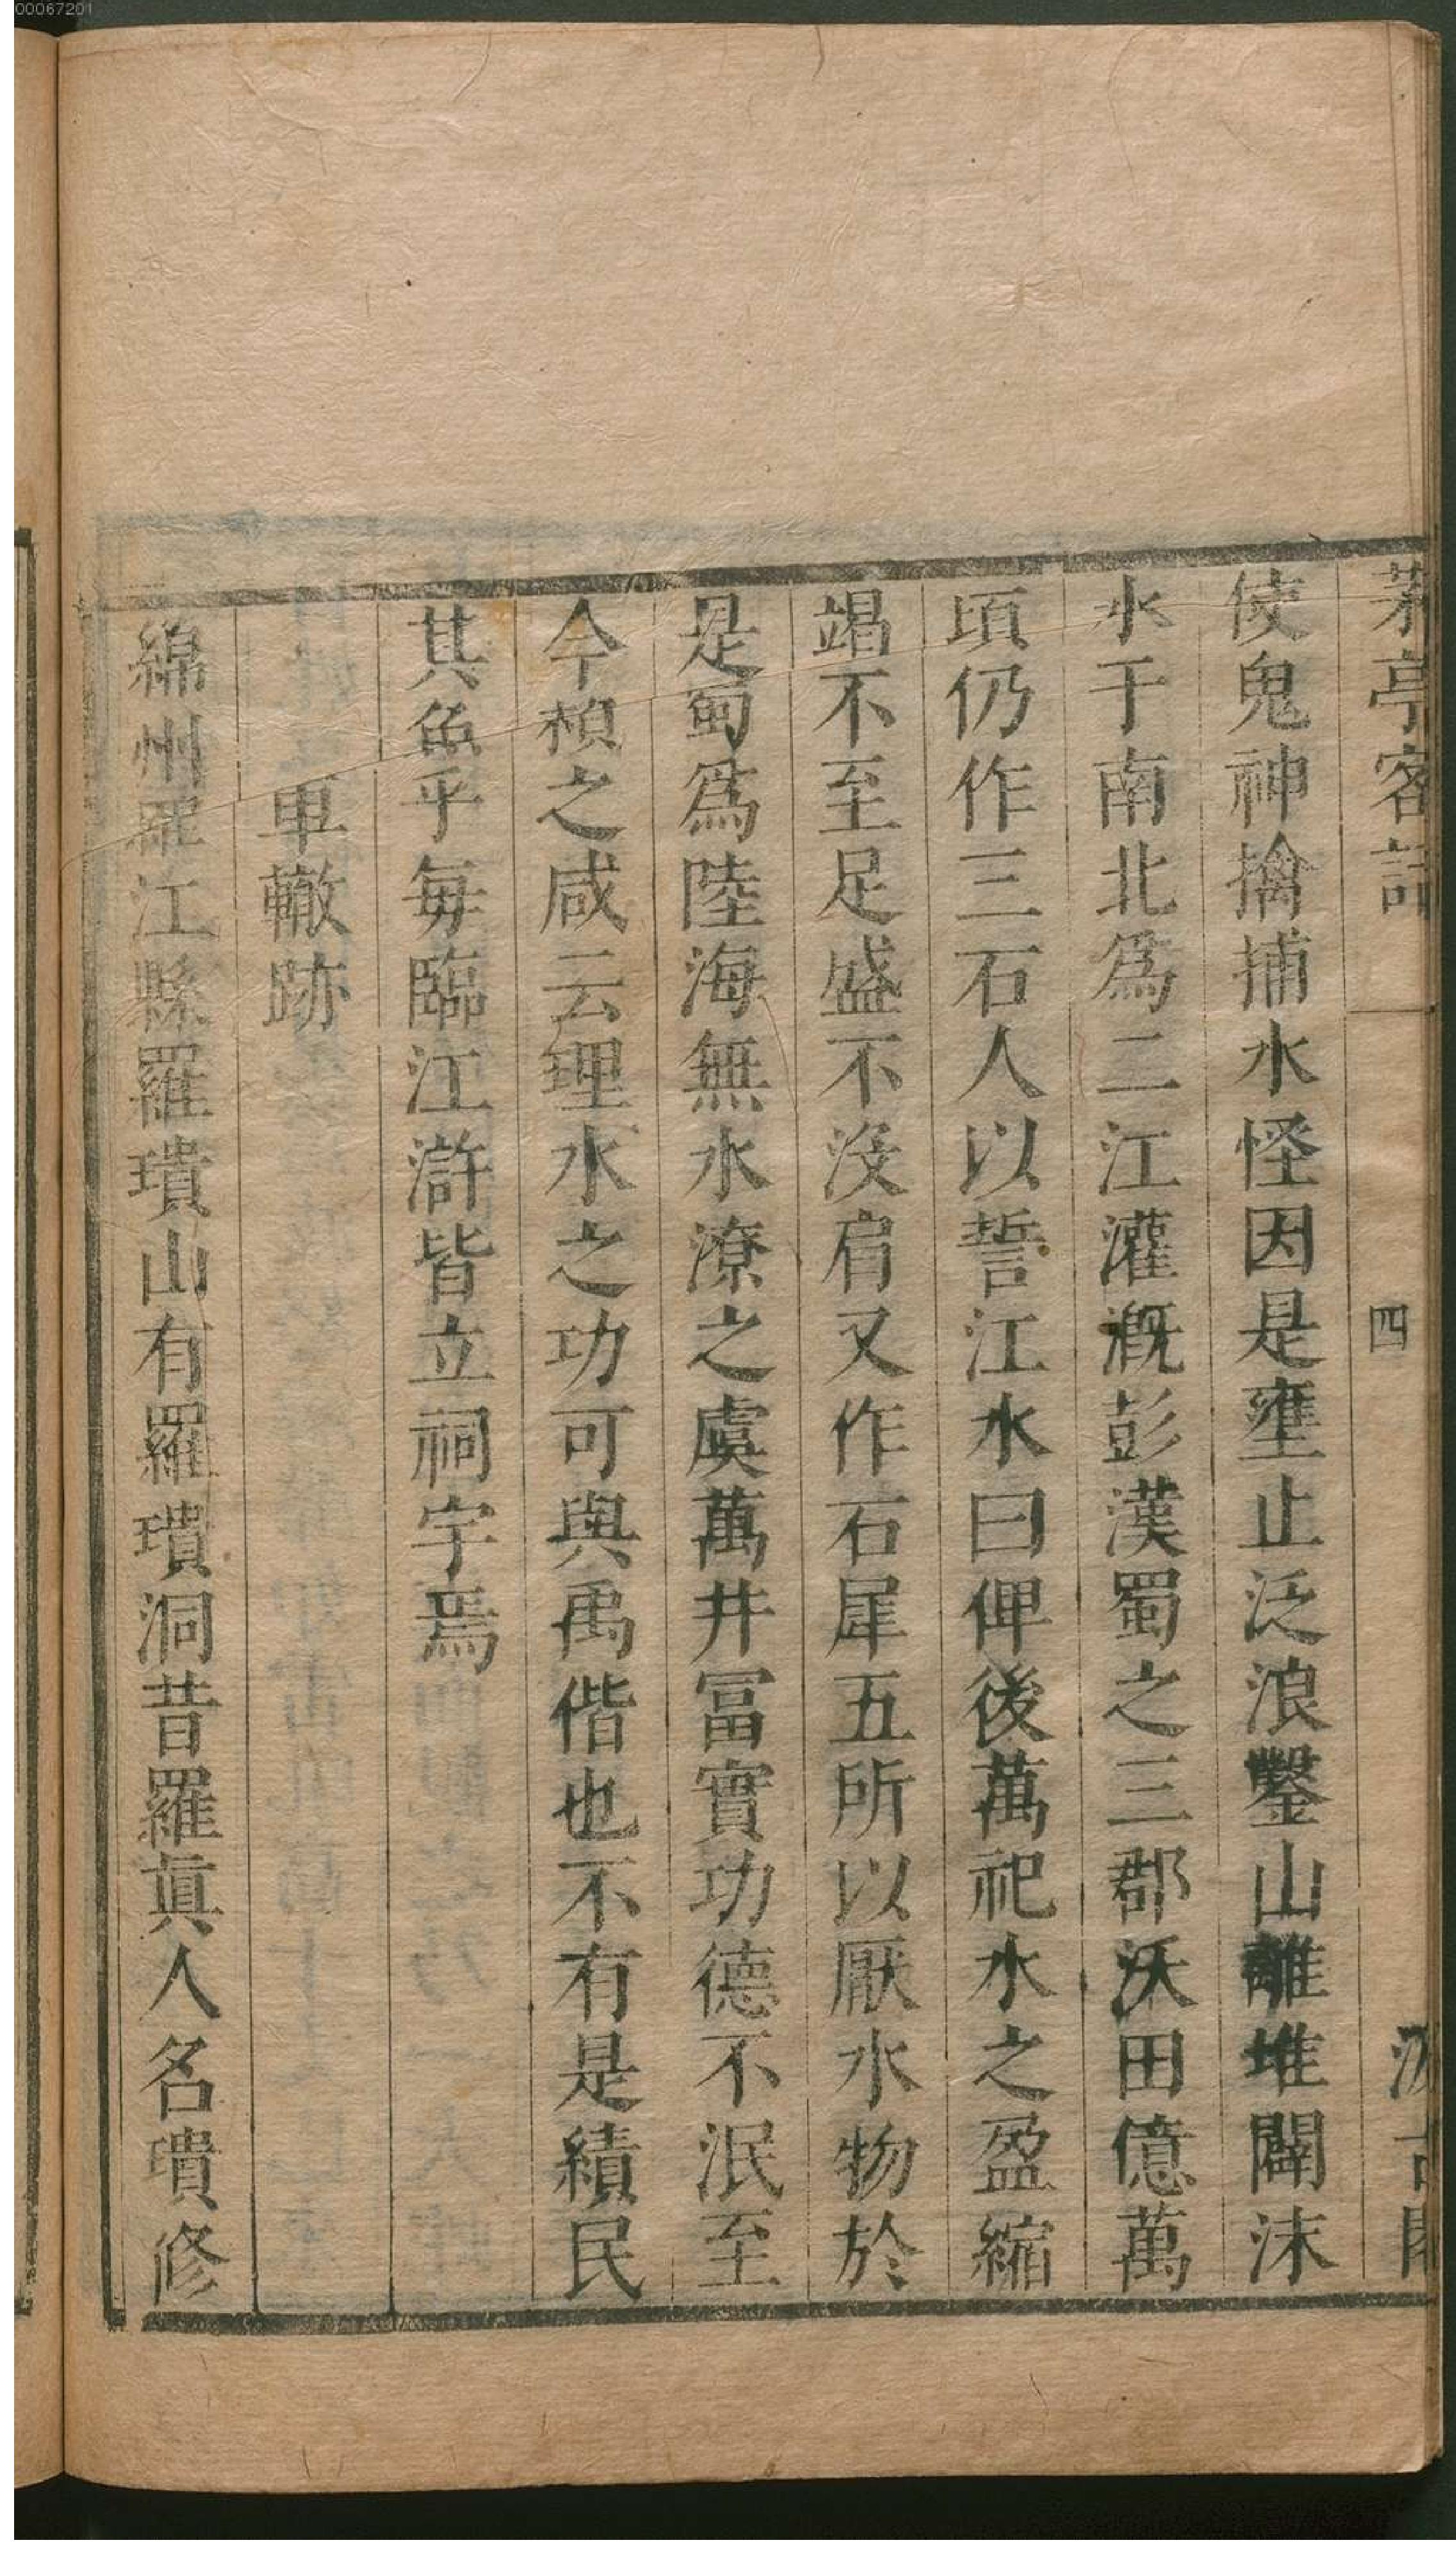 00067201
茅亭客話 四 汲古閣
使鬼神擒捕水怪因是壅止泛浪鑿山離堆闢沫
水于南北爲二江灌漑彭漢蜀之三郡沃田億萬
頃仍作三石人以誓江水曰俾後萬祀水之盈縮
竭不至足盛不没肩又作石犀五所以厭水物於
是蜀爲陸海無水潦之虞萬井冨實功德不泯至
今頼之咸云理水之功可與禹偕也不有是績民
其魚乎毎臨江滸皆立祠宇焉
車轍跡
綿州羅江縣羅璝山有羅璝洞昔羅眞人名璝修